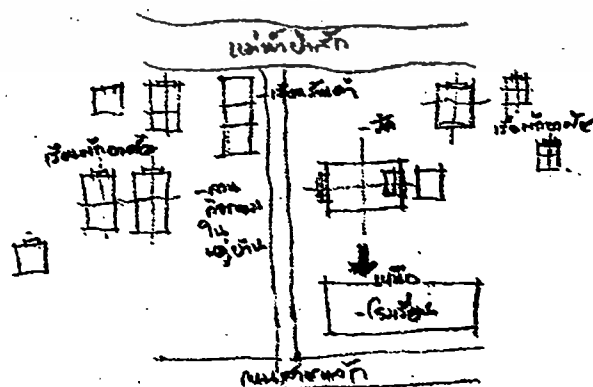 แม่น้ำป่าสัก
-เรือนร้านค้า
-วัด
เรือนพักอาศัย
เรือนพักอาศัย
-ลาน
กิจกรรม
ใน
หมู่บ้าน
เหนือ
-โรงเรียน
ถนนสายหลัก